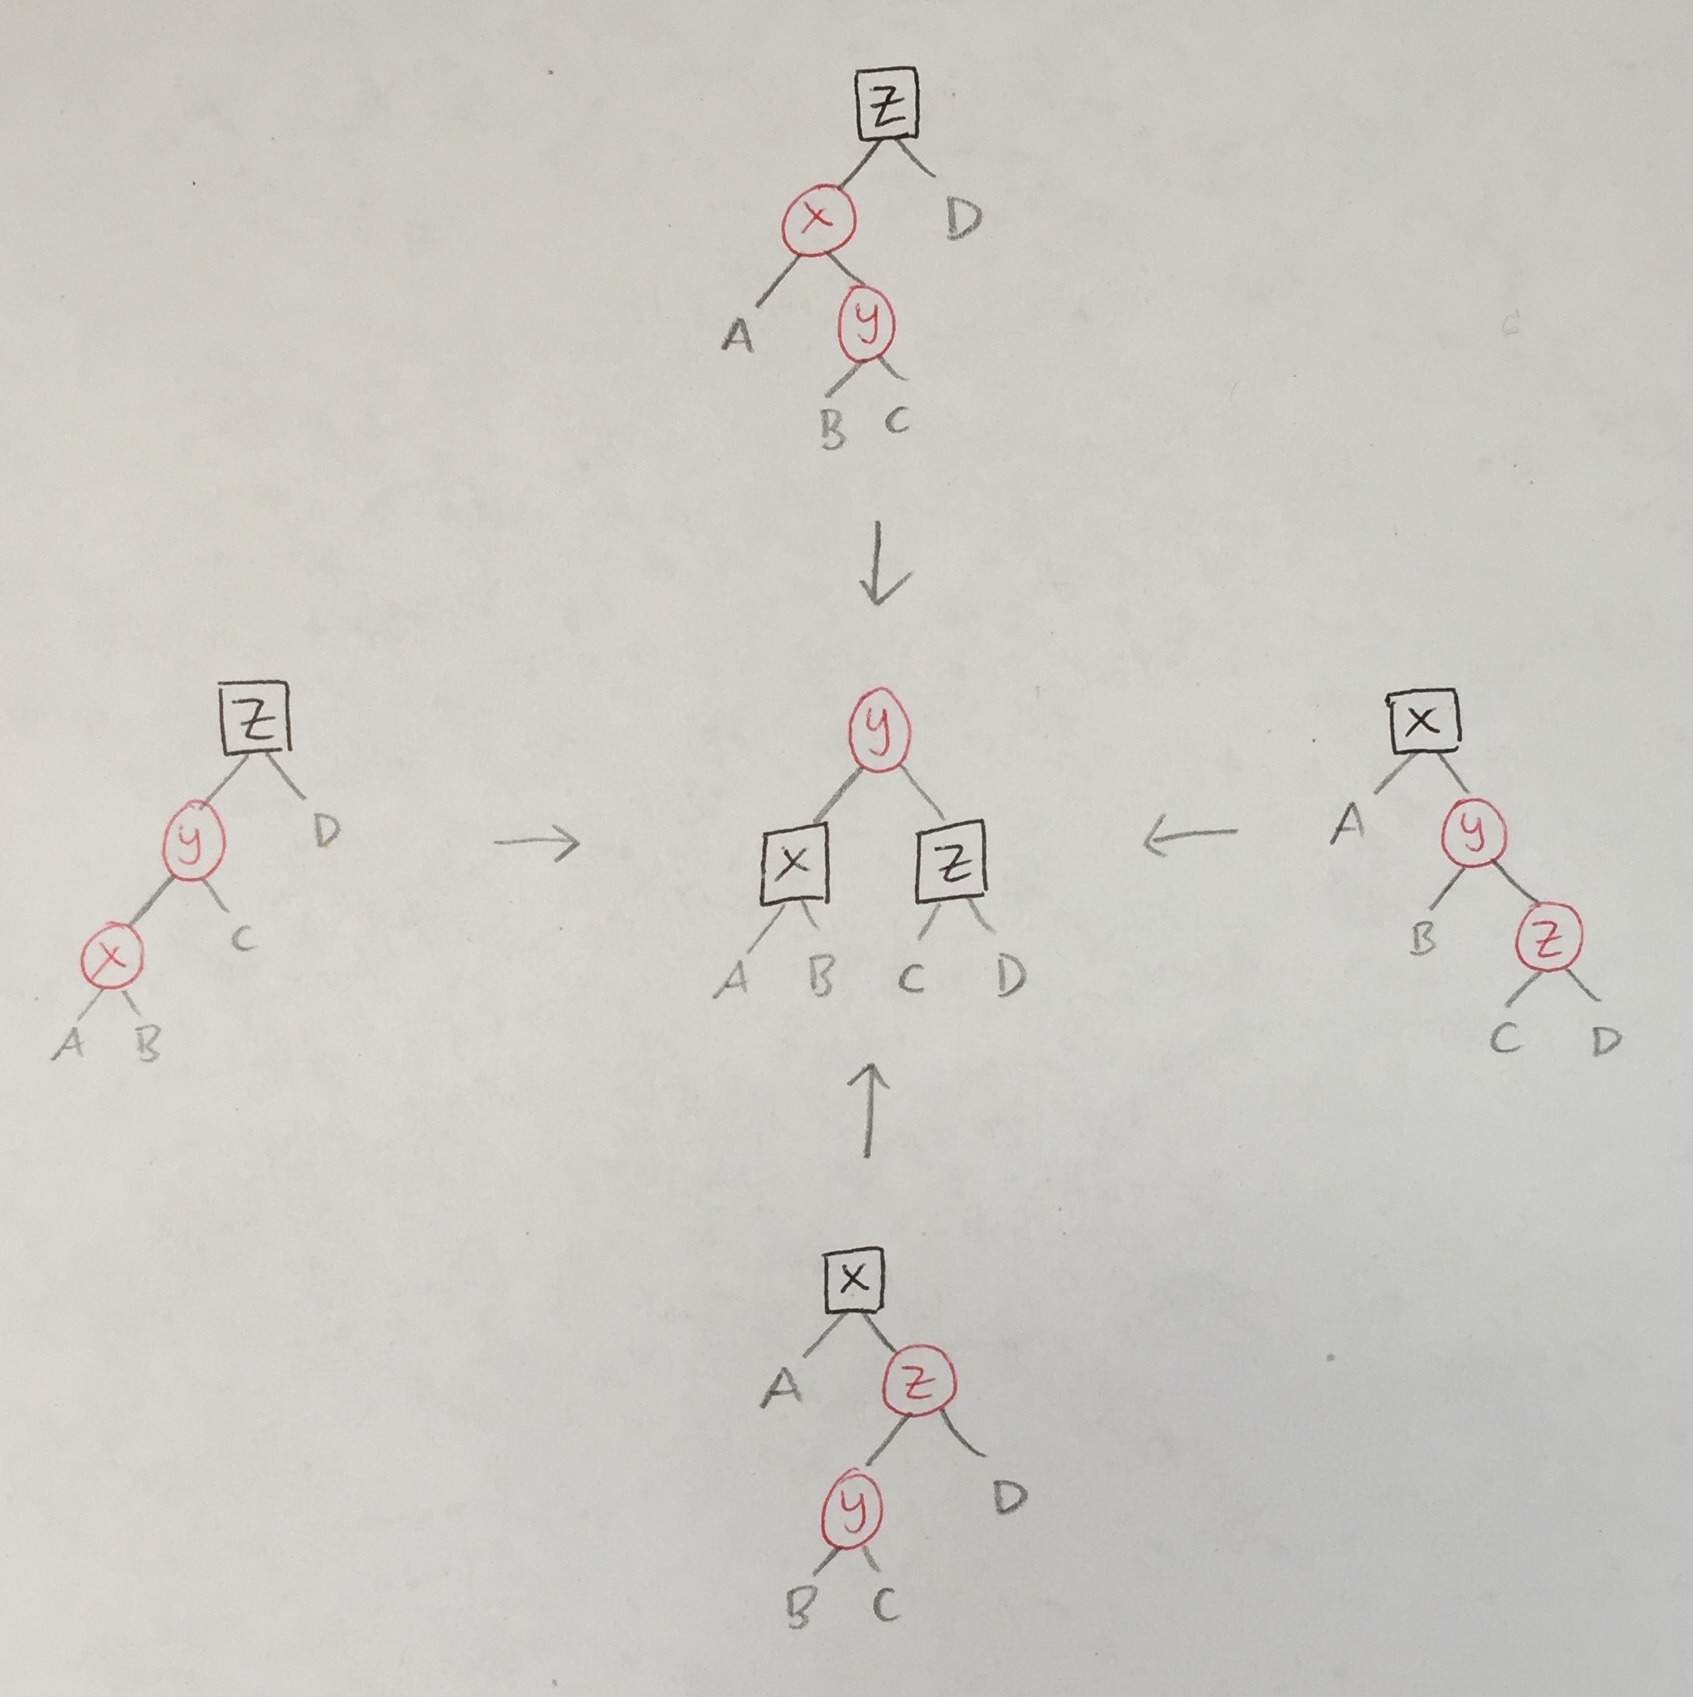 Z
X D
A y
B C
Z
y D
X C
A B
y
X Z
A B C D
X
A y
B Z
C D
X
A Z
y D
B C